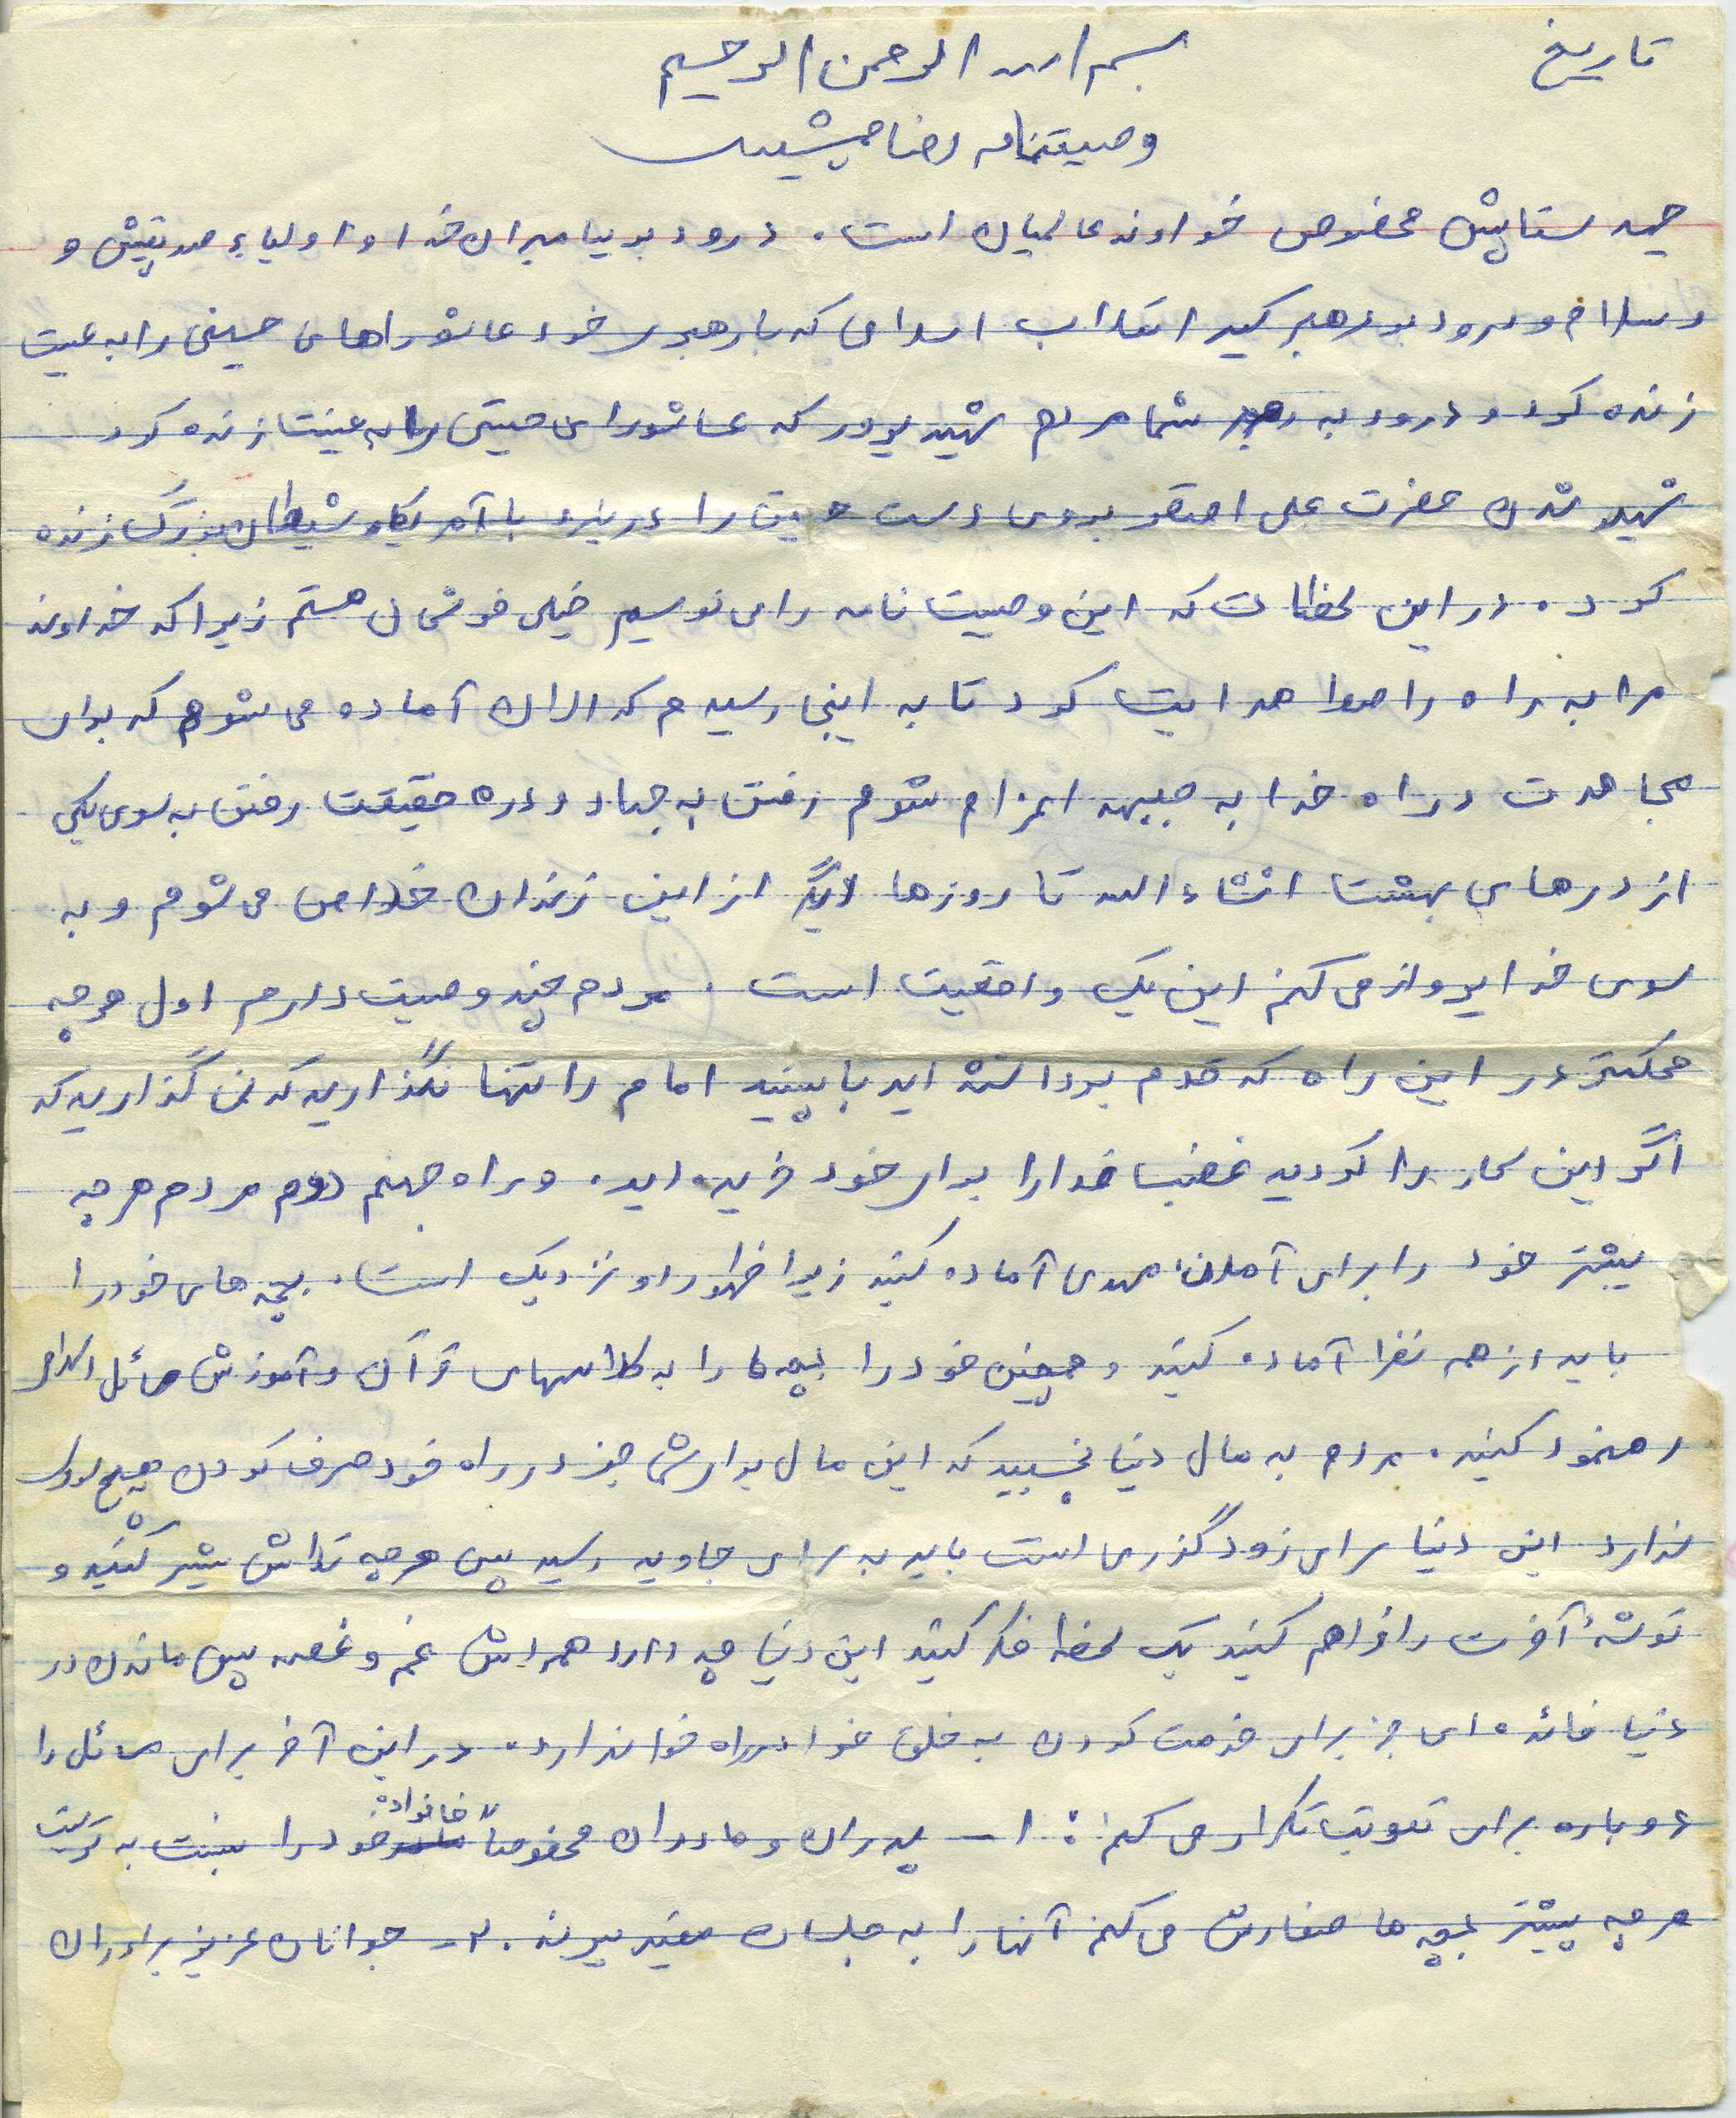 تاریخ
بسم الله الرحمن الرحیم
وصیتنامه رضا
حمد ستایش مخصوص خداوند عالمیان است. درود بر پیامبران خدا و اولیاء صدیقش و
و سلام و درود بر رهبر کبیر انقلاب اسلامی که با رهبری خود عاشوراهای حسینی را به عینیت
زنده کرد و درود به رهبر شما مردم شهید پرور که عاشورای حسینی را به عینیت زنده کرد
شهید شدن حضرت علی اصغر بروی دست حسین را در نبرد با آمریکا و شیطان بزرگ زنده
کرد. در این لحظات که این وصیت نامه را می نویسم خیلی خوشحال هستم زیرا که خداوند
مرا به راه راست هدایت کرد تا به اینجا رسیدم که الان آماده می شوم که برای
مجاهدت در راه خدا به جبهه اعزام شوم رفتن به جهاد و در حقیقت رفتن به سوی یکی
از درهای بهشت انشاءالله تا روزها دیگر از این زندان خلاص می شوم و به
سوی خدا پرواز می کنم این یک واقعیت است. مردم چند وصیت دارم اول هر چه
محکمتر در این راه که قدم برداشته اید باشید امام را تنها نگذارید که نمی گذارید که
اگر این کار را کردید غضب خدا را برای خود خریده اید. و راه جهنم دوم مردم هر چه
بیشتر خود را برای آمدن مهدی آماده کنید زیرا ظهور او نزدیک است. بچه های خود را
باید از همه نظر آماده کنید و همچنین خود را بچه ها را به کلاسهای قرآن و آموزش مسائل اسلامی
رهنمود کنید. مردم به مال دنیا نچسبید که این مال برای شما جز در راه خود صرف کردن هیچ سودی
ندارد این دنیا سرای زودگذری است باید به سرای جاوید رسید پس هر چه تلاش بیشتر کنید و
توشهٔ آخرت را فراهم کنید یک لحظه فکر کنید این دنیا چه دارد همه اش غم و غصه پس ماندن در
دنیا فائده ای جز برای خدمت کردن به خلق خدا در راه خدا ندارد. در این آخر برای مسائل را
دوباره برای تقویت تکرار می کنم: ۱- پدران و مادران مخصوصاً خانواده خود را نسبت به تربیت
هر چه بیشتر بچه ها سفارش می کنم آنها را به جلسات مفید ببرند. ۲- جوانان عزیز برادران